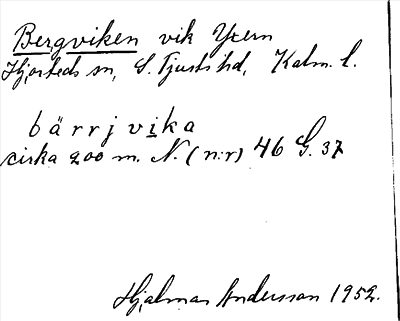 Bergviken vik Yxern
Hjorteds sn, S. Tjusts hd, Kalm. l.
bärrjvika
cirka 200 m. N. (n:r) 46 G. 37
Hjalmar Andersson 1952.